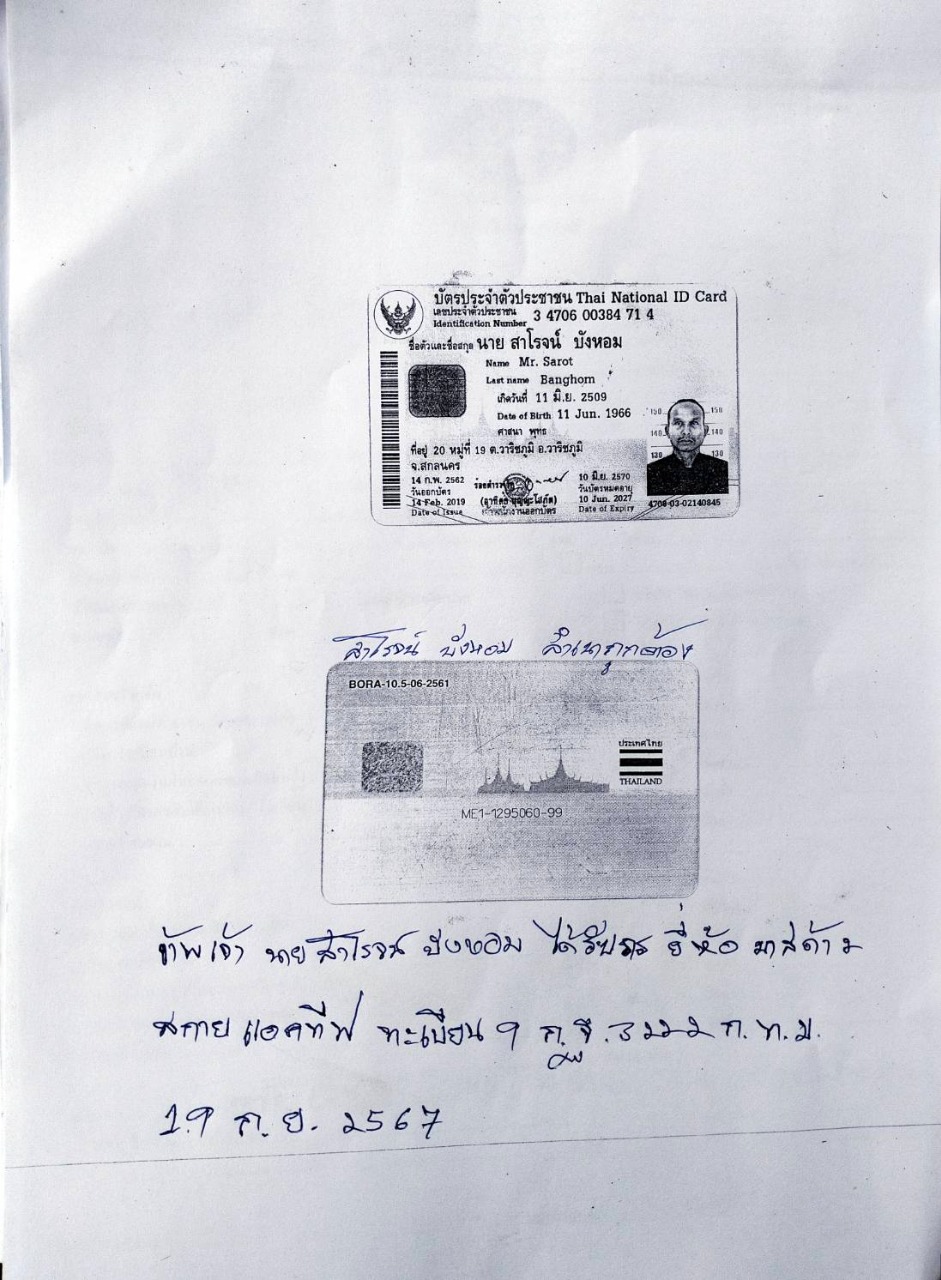 บัตรประจำตัวประชาชน Thai National ID Card
เลขประจำตัวประชาชน
Identification Number 3 4706 00384 71 4
ชื่อตัวและชื่อสกุล นาย สาโรจน์ บังหอม
Name Mr. Sarot
Last name Banghom
เกิดวันที่ 11 มิ.ย. 2509
Date of Birth 11 Jun. 1966
ศาสนา พุทธ
ที่อยู่ 20 หมู่ที่ 19 ต.วาริชภูมิ อ.วาริชภูมิ
จ.สกลนคร
14 ก.พ. 2562
วันออกบัตร
14 Feb. 2019
Date of Issue
เจ้าพนักงานออกบัตร
10 มิ.ย. 2570
วันบัตรหมดอายุ
10 Jun. 2027
Date of Expiry
150 150
140 140
130 130
4706-03-02140845
สาโรจน์ บังหอม สำเนาถูกต้อง
BORA-10.5-06-2561
ประเทศไทย
THAILAND
ME1-1295060-99
ข้าพเจ้า นายสาโรจน์ บังหอม ได้รับรถ ยี่ห้อ มาสด้า 2
สกายแอคทีฟ ทะเบียน 9 กฐ.3222 ก.ท.ม.
19 ก.ย. 2567